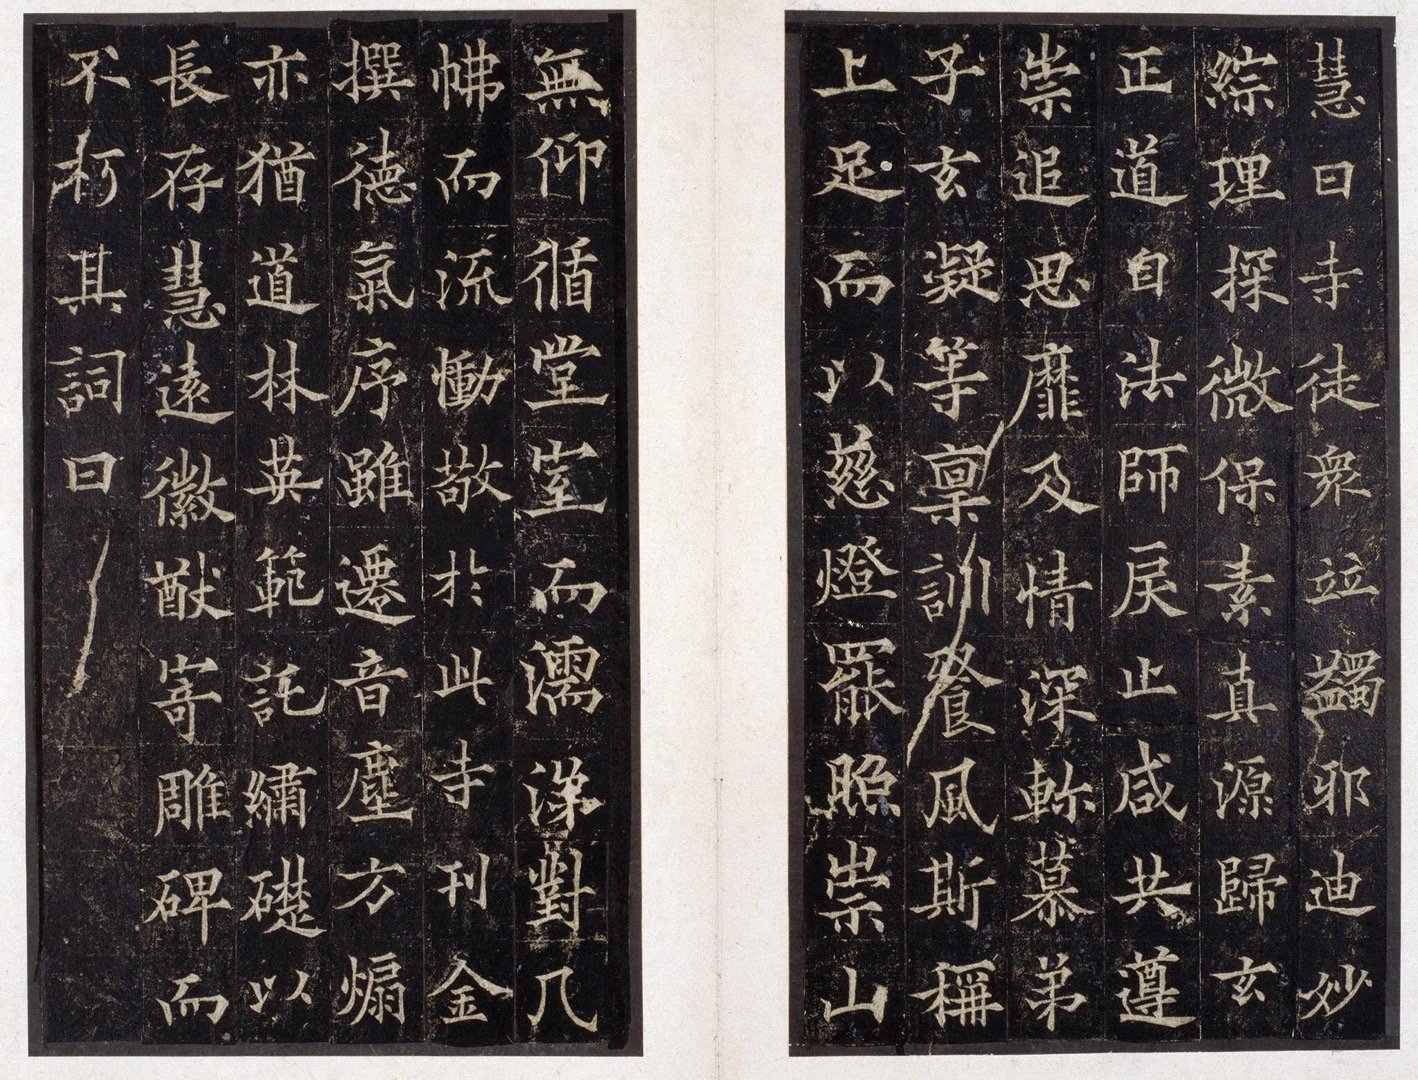 慧曰寺徒衆竝蠲邪迪妙
綜理探微保素真源歸玄
正道自法師戾止咸共遵
崇追思靡及情深軫慕弟
子玄凝等稟訓飡風斯稱
上足而以慈燈罷照崇山
無仰循堂室而濡涕對几
怫而流慟敬於此寺刊金
撰德氣序雖遷音塵方煽
亦猶道林英範託繡礎以
長存慧遠徽猷寄雕碑而
不朽其詞曰